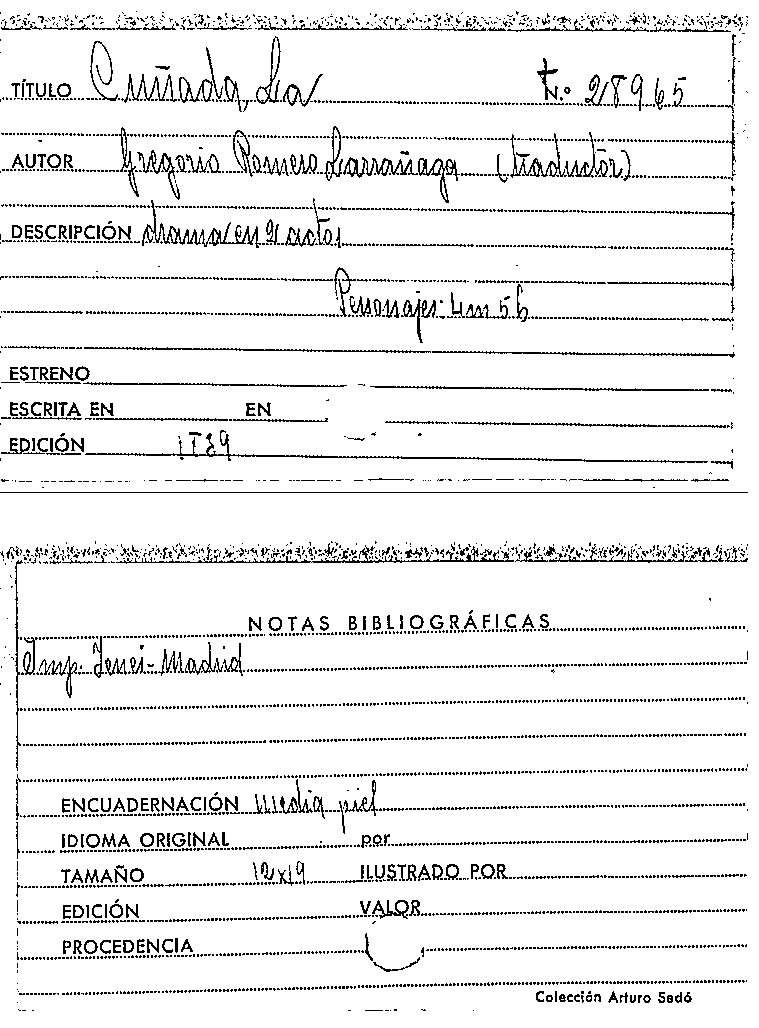 TÍTULO Cuñada, La N.º 28965
AUTOR Gregorio Romero Larrañaga (traductor)
DESCRIPCIÓN drama en 2 actos
Personajes: 4m 5h
ESTRENO
ESCRITA EN EN
EDICIÓN
NOTAS BIBLIOGRÁFICAS
Imp. - Madrid
ENCUADERNACIÓN media piel
IDIOMA ORIGINAL por
TAMAÑO 12x19 ILUSTRADO POR
EDICIÓN VALOR
PROCEDENCIA
Colección Arturo Sedó